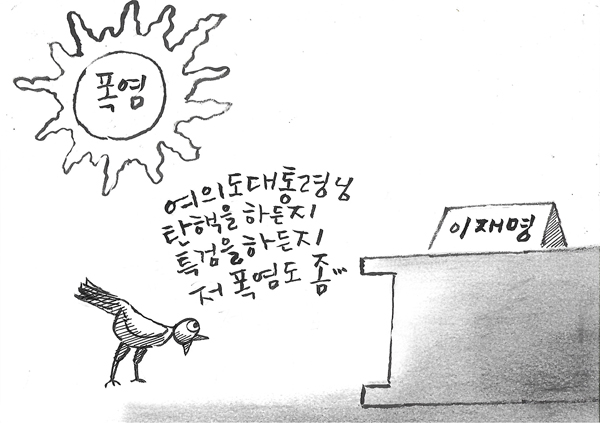 폭염
여의도대통령님
탄핵을 하든지
특검을 하든지
저 폭염도 좀...
이재명